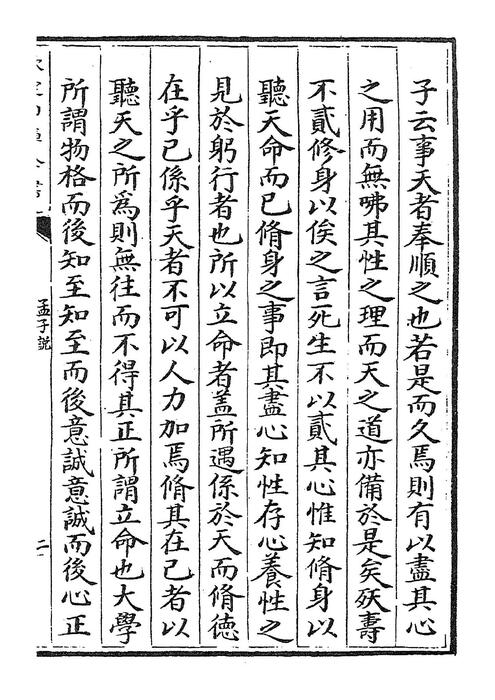 子云事天者奉順之也若是而久焉則有以盡其心
之用而無咈其性之理而天之道亦備於是矣殀壽
不貳修身以俟之言死生不以貳其心惟知脩身以
聽天命而已脩身之事即其盡心知性存心養性之
見於躬行者也所以立命者盖所遇係於天而脩德
在乎已係乎天者不可以人力加焉脩其在已者以
聽天之所為則無往而不得其正所謂立命也大學
所謂物格而後知至知至而後意誠意誠而後心正
孟子説
二